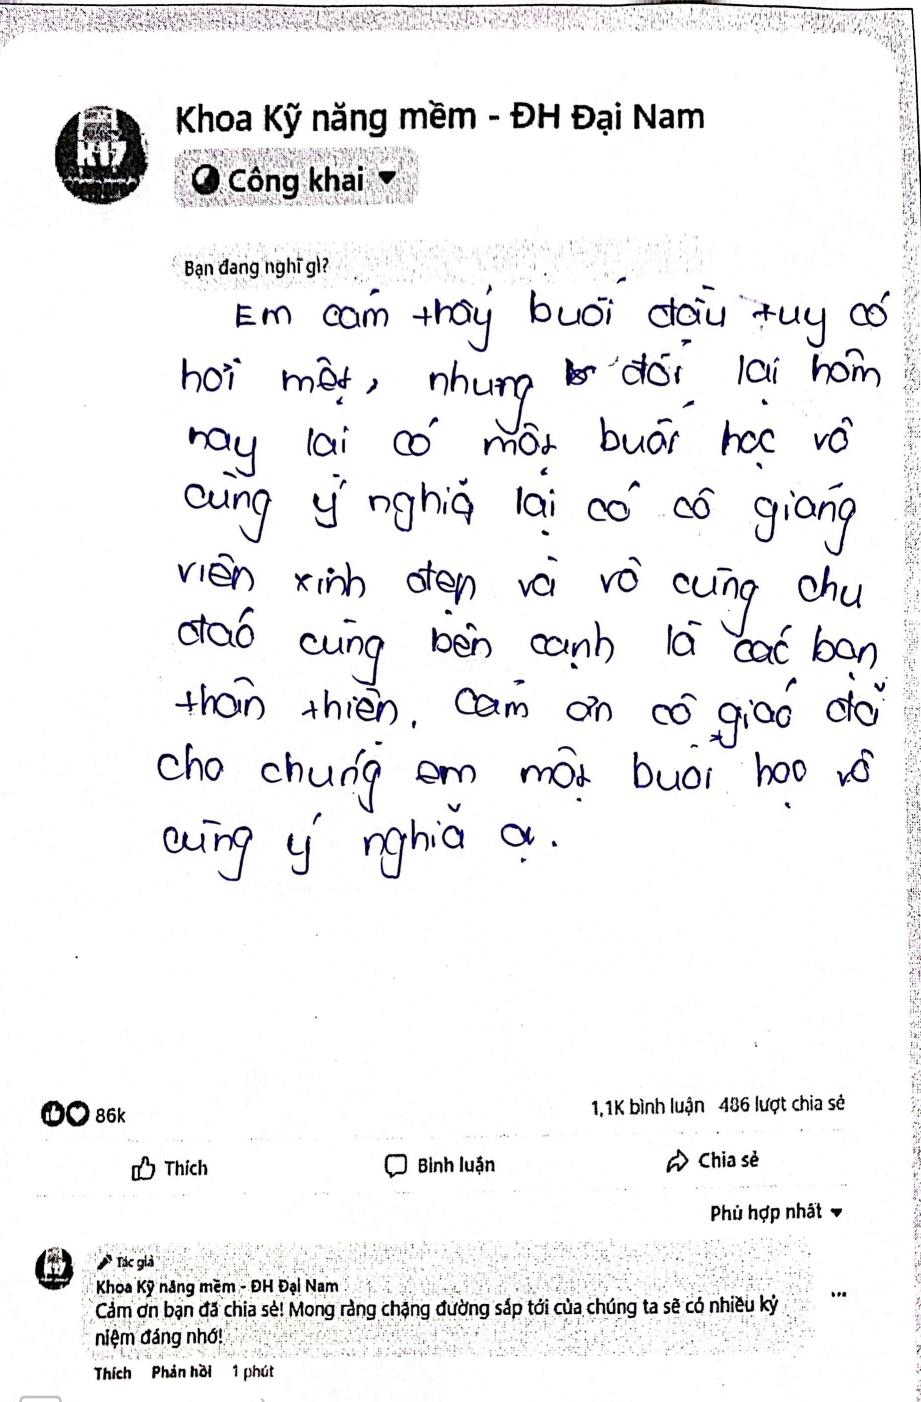 Khoa Kỹ năng mềm - ĐH Đại Nam
K17
Công khai
Bạn đang nghĩ gì?
Em cảm thấy buổi đầu tuy có
hơi mệt, nhưng đổi lại hôm
nay lại có một buổi học vô
cùng ý nghĩa lại có cô giảng
viên xinh đẹp và vô cùng chu
đáo cùng bên cạnh là các bạn
thân thiện. Cảm ơn cô giáo đã
cho chúng em một buổi học vô
cùng ý nghĩa ạ.
86k
1,1K bình luận 486 lượt chia sẻ
Thích Bình luận Chia sẻ
Phù hợp nhất
Tác giả
Khoa Kỹ năng mềm - ĐH Đại Nam
Cảm ơn bạn đã chia sẻ! Mong rằng chặng đường sắp tới của chúng ta sẽ có nhiều kỷ
niệm đáng nhớ!
Thích Phản hồi 1 phút